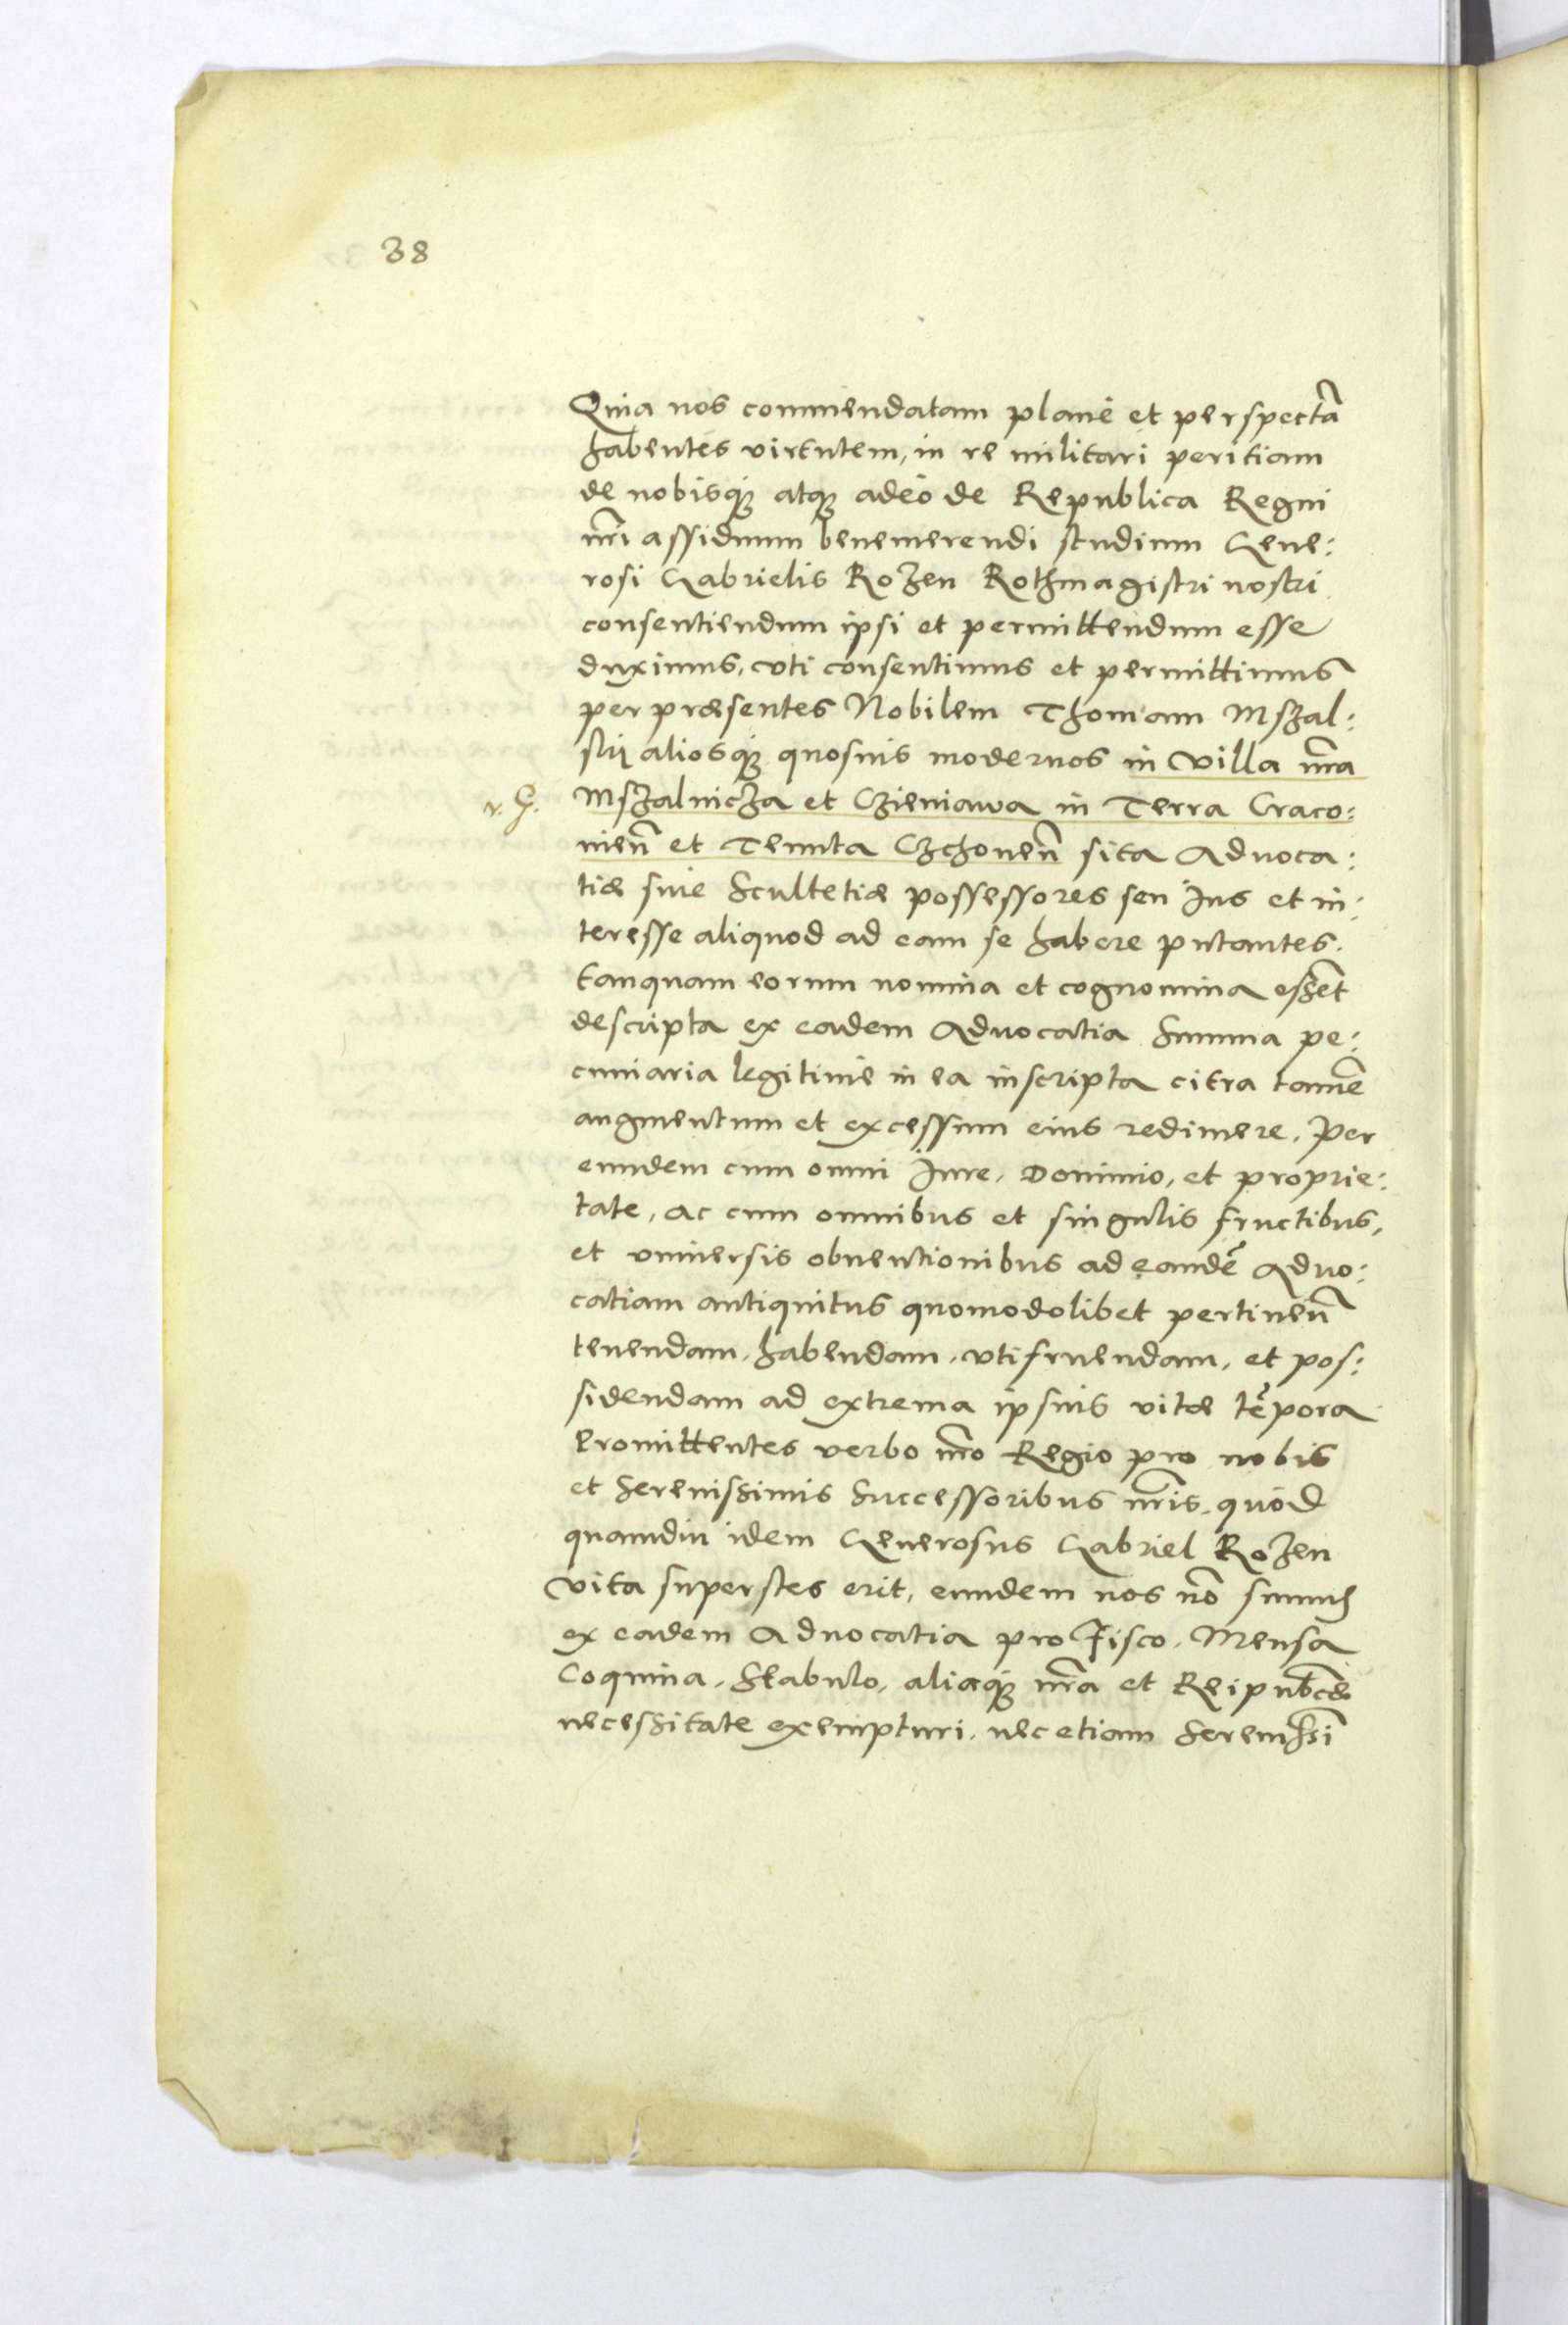 38
Quia nos commendatam planè et perspectā
habentes virtutem, in re militari peritiam
de nobisq́ue atq́ue adeò de Republica Regni
nr̄i assiduum benemerendi studium Gene:
rosi Gabrielis Rozen Rothmagistri nostri
consentiendum ipsi et permittendum esse
duximus, vti consentimus et permittimus
per præsentes Nobilem Thomam Mszal:
skij aliosq́ue quosuis modernos in villa nr̄a
Mszalnicza et Czieniawa in Terra Craco:
nien̄ et Tenuta Czchonen̄ sita Aduoca:
tiæ siue Scultetiæ possessores seu Jus et in:
teresse aliquod ad eam se habere putantes.
tanquam eorum nomina et cognomina essēt
descripta ex eadem Aduocatia Summa pe:
cuniaria legitimè in ea inscripta citra tamē
augmentum et excessum eius redimere. Per
eundem cum omni Jure, Dominio, et proprie:
tate, ac cum omnibus et singulis fructibus,
et vniuersis obuentionibus ad eandē Aduo:
catiam antiquitus quomodolibet pertinen̄
tenendam, habendam, vtifruendam, et pos:
sidendam ad extrema ipsius vitæ tēpora
Promittentes verbo nr̄o Regio pro nobis
et Serenissimis Successoribus nr̄is, quòd
quamdiu idem Generosus Gabriel Rozen
vita superstes erit, eundem nos nō sumus
ex eadem Aduocatia pro Fisco, Mensa
Coquina, Stabulo, aliaq́ue nr̄a et Reipub̄cæ
necessitate exempturi, nec etiam Serenissī